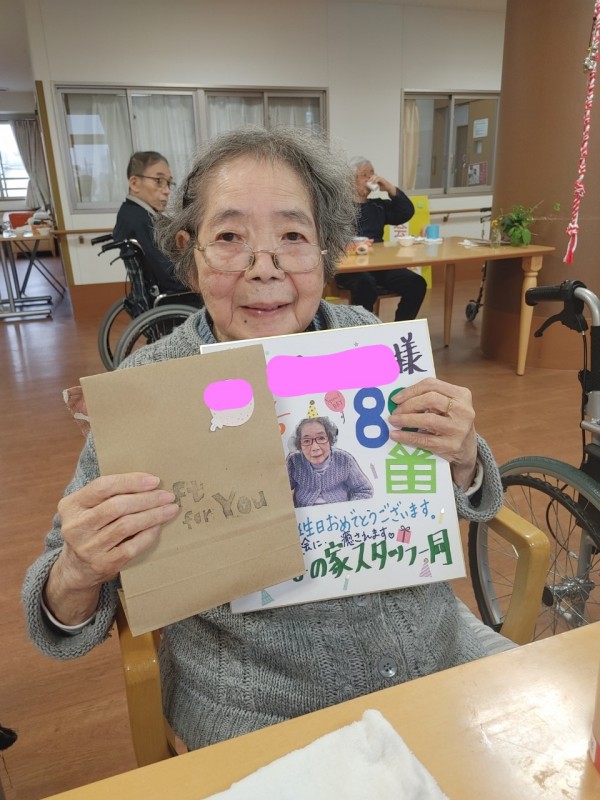 ft
for You
様
8
生日おめでとうございます。
会に、癒されます♡
の家スタッフ一同